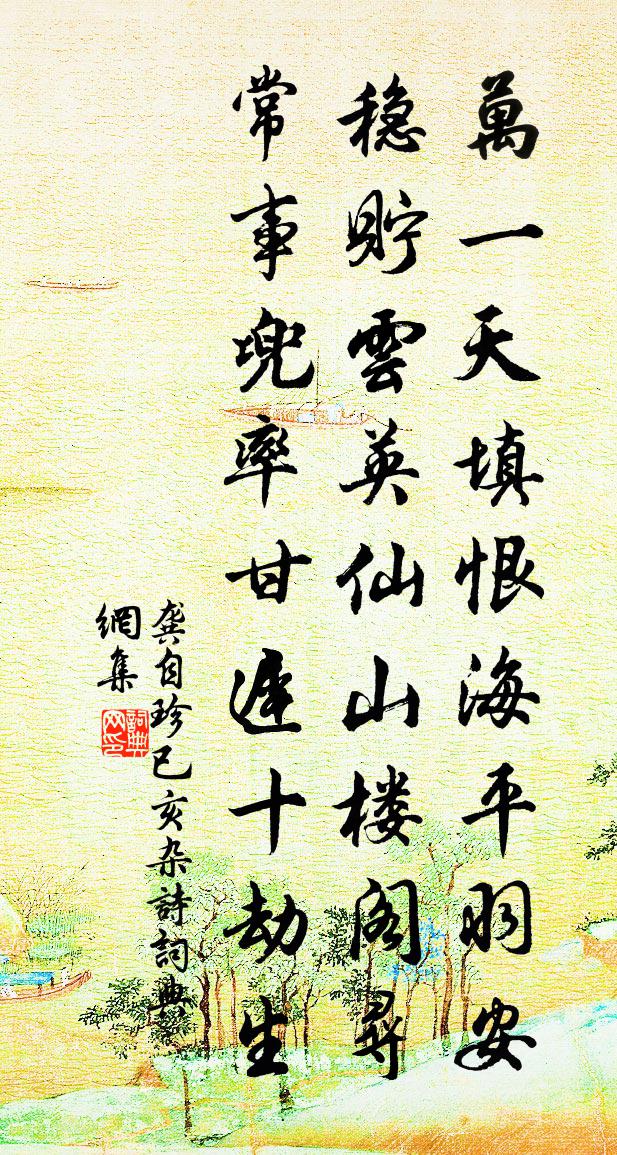 萬一天填恨海平羽安
穏貯雲英仙山楼閣尋
常事兜率甘遲十劫生
龔自珍己亥杂詩詞典
網集
詞典
网印